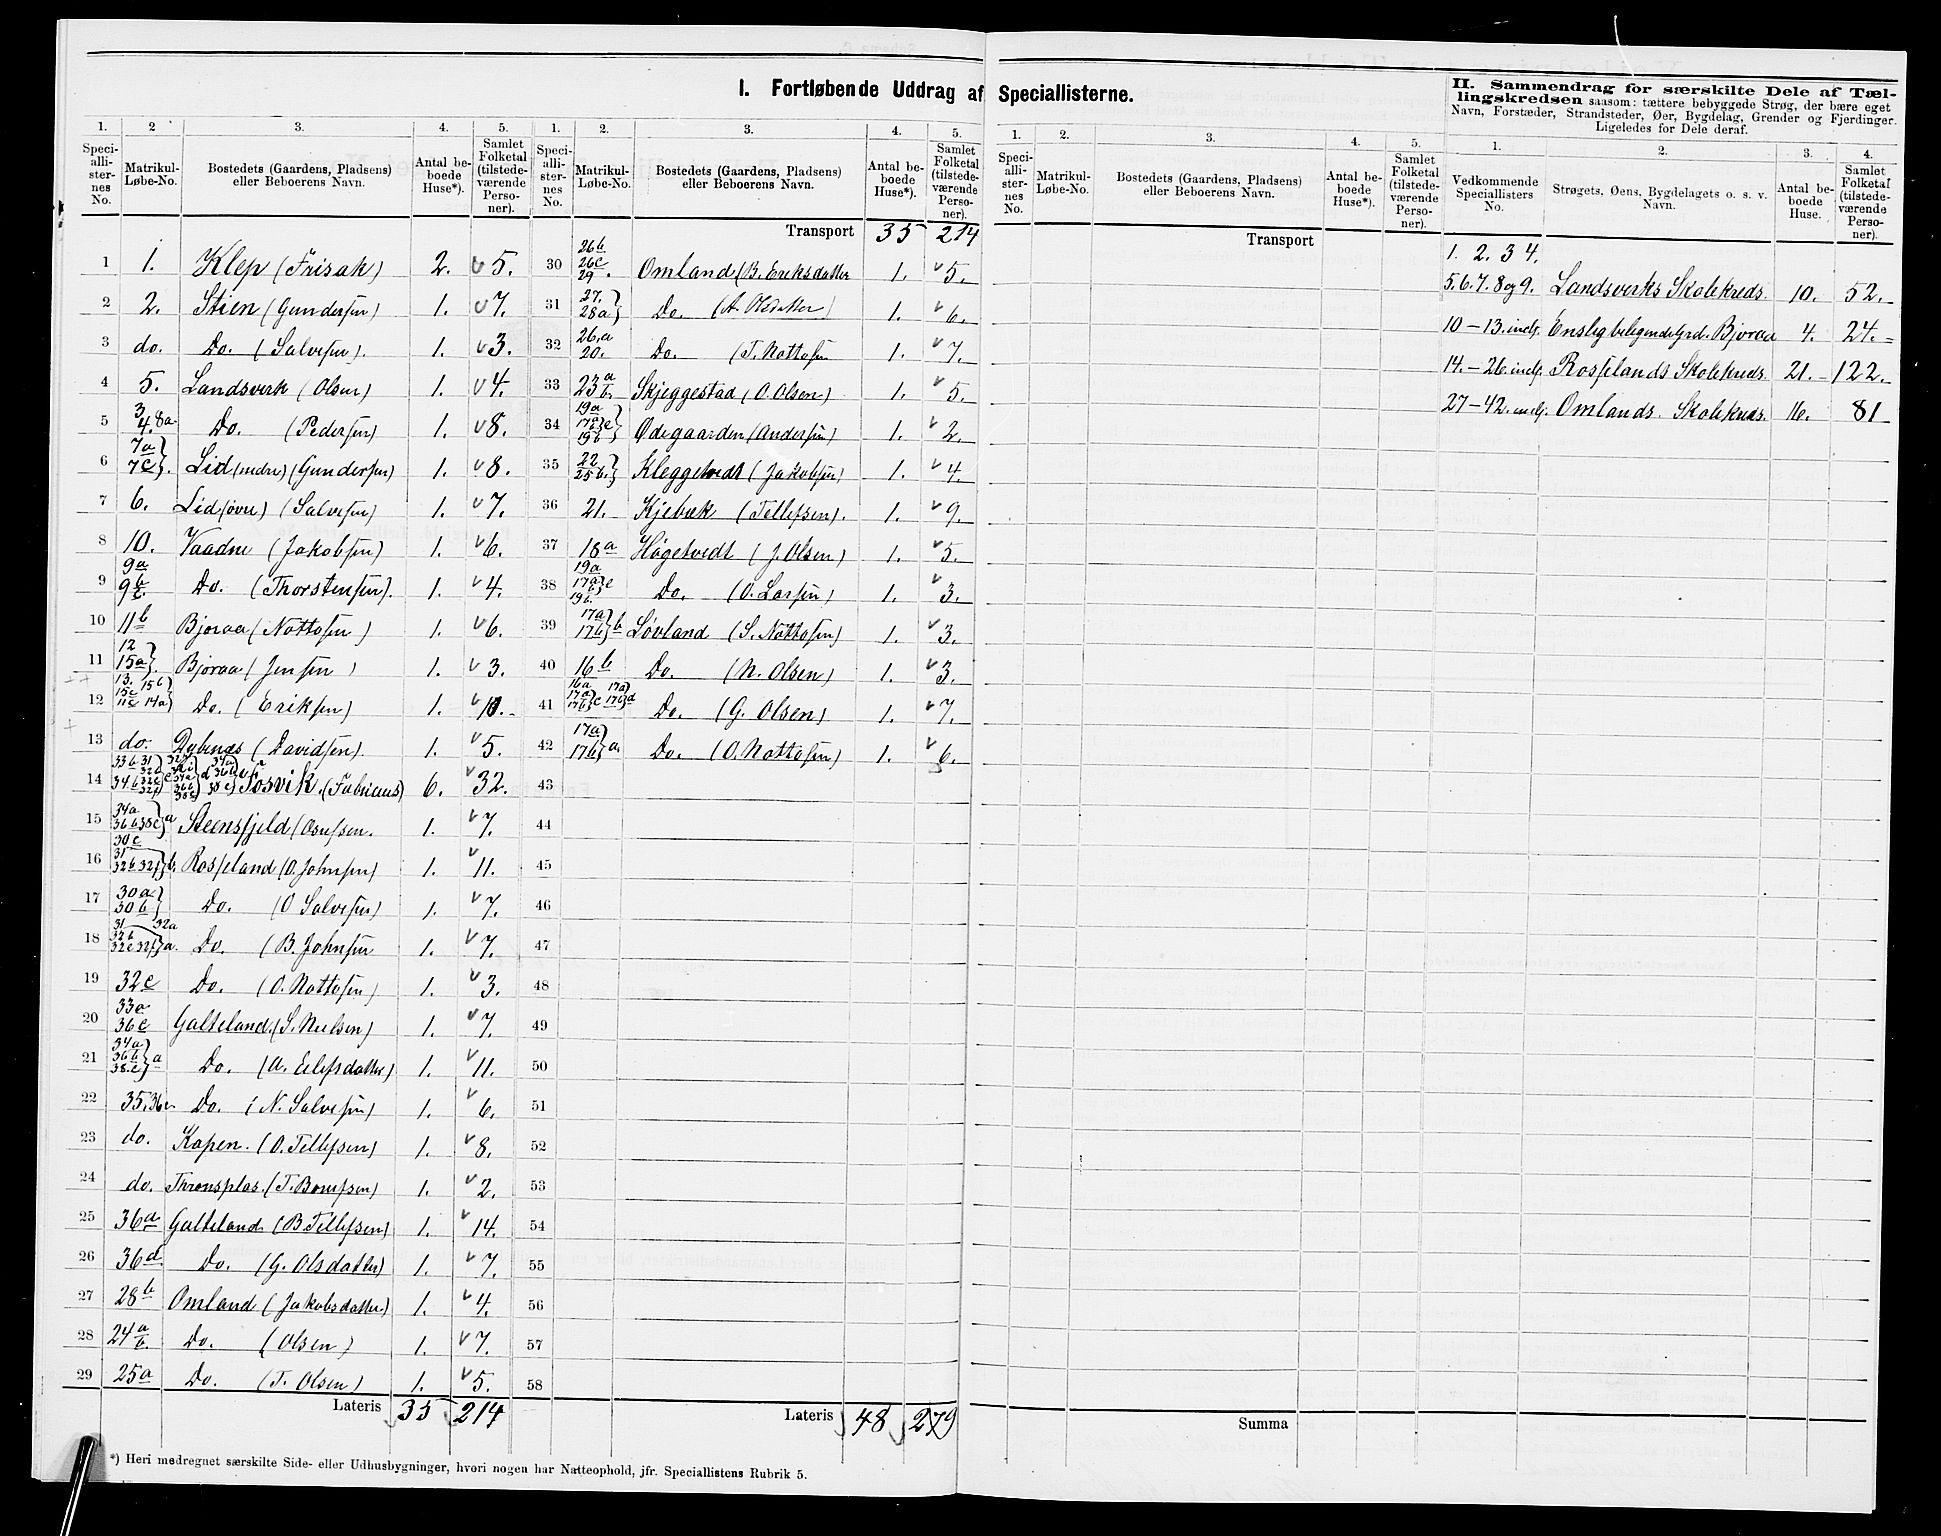 I. Fortløbende Uddrag af Speciallisterne.
II. Sammendrag for særskilte Dele af Tæl-
lingskredsen saasom: tættere bebyggede Strøg, der bære eget
Navn, Forstæder, Strandsteder, Øer, Bygdelag, Grender og Fjerdinger.
Ligeledes for Dele deraf.
1. 2 3. 4. 5. 1. 2. 3. 4. 5. 1. 2. 3. 4. 5. 1. 2. 3. 4.
Speci-alli-ster-nes No. Matrikul-Løbe-No. Bostedets (Gaardens, Pladsens) eller Beboerens Navn. Antal be-boede Huse*). Samlet Folketal (tilstede-værende Perso-ner).
Speci-alli-ster-nes No. Matrikul-Løbe-No. Bostedets (Gaardens, Pladsens) eller Beboerens Navn. Antal be-boede Huse*). Samlet Folketal (tilstede-værende Perso-ner).
Speci-alli-ster-nes No. Matrikul-Løbe-No. Bostedets (Gaardens, Pladsens) eller Beboerens Navn. Antal be-boede Huse*). Samlet Folketal (tilstede-værende Perso-ner).
Vedkommende Speciallisters No. Strøgets, Øens, Bygdelagets o. s. v. Navn. Antal be-boede Huse. Samlet Folketal (tilstede-værende Perso-ner).
1 1. Klep (Frisak) 2. 5.
2 2. Stien (Gundersen) 1. 7.
3 do. Do. (Salvesen). 1. 3.
4 5. Landsverk (Olsen) 1. 4.
5 3 4. 8a. Do. (Pedersen) 1. 8.
6 7a 7c}. Lid (nedre) (Gundersen) 1. 8.
7 6. Lid (øvre) (Salvesen) 1. 7.
8 10. Vaadne (Jakobsen) 1. 6.
9 9a 9b c. Do. (Thorstensen). 1. 4.
10 11b Bjoraa (Nottosen) 1. 6.
11 12 15a}. Bjoraa (Jensen) 1. 3.
12 13. 15b 15c 11c 14a} Do. (Eriksen) 1. 10.
13 do. Dybenæs (Davidsen). 1. 5.
14 Fosvik. (Fabricius) 6. 32.
15 34a 36b 38c} a Steensfjeld (Osufsen. 1. 7.
16 30c 31 32b 32f} b. Rosseland (O. Johnsen) 1. 11.
17 30a 30b} Do. (O Salvesen) 1. 7.
18 31 32a 32b 32c 32f} a. Do. (B. Johnsen 1. 7.
19 32e Do. (O. Nottosen) 1. 3.
20 33a 36c Galteland. (S. Nielsen) 1. 7.
21 34a 36b 38.c} a Do. (A. Eilefsdatter) 1. 11.
22 35. 36e Do. (N. Salvesen) 1. 6.
23 do. Kapen. (O. Tellefsen) 1. 8.
24 do. Thronsplas. (T. Bonefsen) 1. 2.
25 36d Galteland. (B. Tellefsen) 1. 14.
26 36d. Do. (G. Olsdatter) 1. 7.
27 28b Omland (Jakobsdatter) 1. 4.
28 24a b. Do. (Olsen) 1. 7.
29 25a Do. (T. Olsen) 1. 5.
Lateris 35 214
Transport 35 214
30 26b 26c 29. Omland (B. Eriksdatter 1. 5.
31 27. 28a} Do. (A. Olsdatter) 1. 6.
32 26.a 20. Do. (T. Nottosen 1. 7.
33 23a b. Skjeggestad (O. Olsen) 1. 5.
34 19a 17a c 19b} Ødegaarden (Andersen) 1. 2.
35 22 25b.} Kleggetvedt (Jakobsen) 1. 4.
36 21. Kjebæk (Tellefsen). 1. 9.
37 18a Høgetvedt (J. Olsen) 1. 5.
38 19a 17a c 19b. Do. (O. Larsen) 1. 3.
39 17a 17b} b Løvland (S. Nottosen) 1. 3.
40 16b Do. (N. Olsen) 1. 3.
41 16a 17a 17b} c 17a 17b} d Do. (G. Olsen) 1. 7.
42 17a 17b} a. Do. (O. Nottosen) 1. 6.
43
44
45
46
47
48
49
50
51
52
53
54
55
56
57
58
Lateris 48 279
Transport
Summa
1. 2. 3 4.
5. 6. 7. 8 og 9. Landsverks Skolekreds. 10. 52.
10 – 13. incl. Enslig beligende Grd. Bjoraa 4. 24.
14. – 26. incl. Rosselands Skolekreds. 21. 122.
27 – 42. incl. Omlands Skolekreds. 16. 81
*) Heri medregnet særskilte Side- eller Udhusbygninger, hvori nogen har Natteophold, jfr. Speciallistens Rubrik 5.